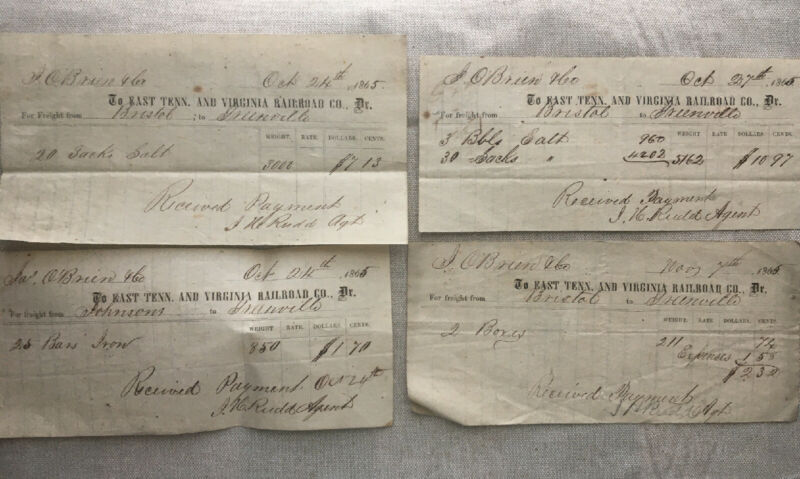 J. O'Brien & Co Oct 24th 1865.
To EAST TENN. AND VIRGINIA RAILROAD CO., Dr.
For Freight from Bristol ; to Greenville
WEIGHT. RATE. DOLLARS. CENTS.
20 Sacks Salt 3000 $7 13
Received Payment
J. H. Rudd Agt
J. O'Brien & Co Oct 27th 1865
To EAST TENN. AND VIRGINIA RAILROAD CO., Dr.
For freight from Bristol to Greenville
WEIGHT RATE DOLLARS. CENTS.
3 Bbls Salt 960
30 Sacks " 4202 5162 $10 97
Received Payment
J. H. Rudd Agent
Jas. O'Brien & Co Oct 24th 1865
To EAST TENN. AND VIRGINIA RAILROAD CO., Dr.
For freight from Johnsons to Greenville
WEIGHT RATE. DOLLARS CENTS.
25 Bars Iron 850 $1 70
Received Payment Oct 24th
J. H. Rudd Agent
J. O'Brien & Co Nov 7th 1865
To EAST TENN. AND VIRGINIA RAILROAD CO., Dr.
For freight from Bristol to Greenville
WEIGHT. RATE DOLLARS. CENTS.
2 Boxes 211 74
Expenses 1 58
$2 32
Received Payment
J. H. Rudd Agt